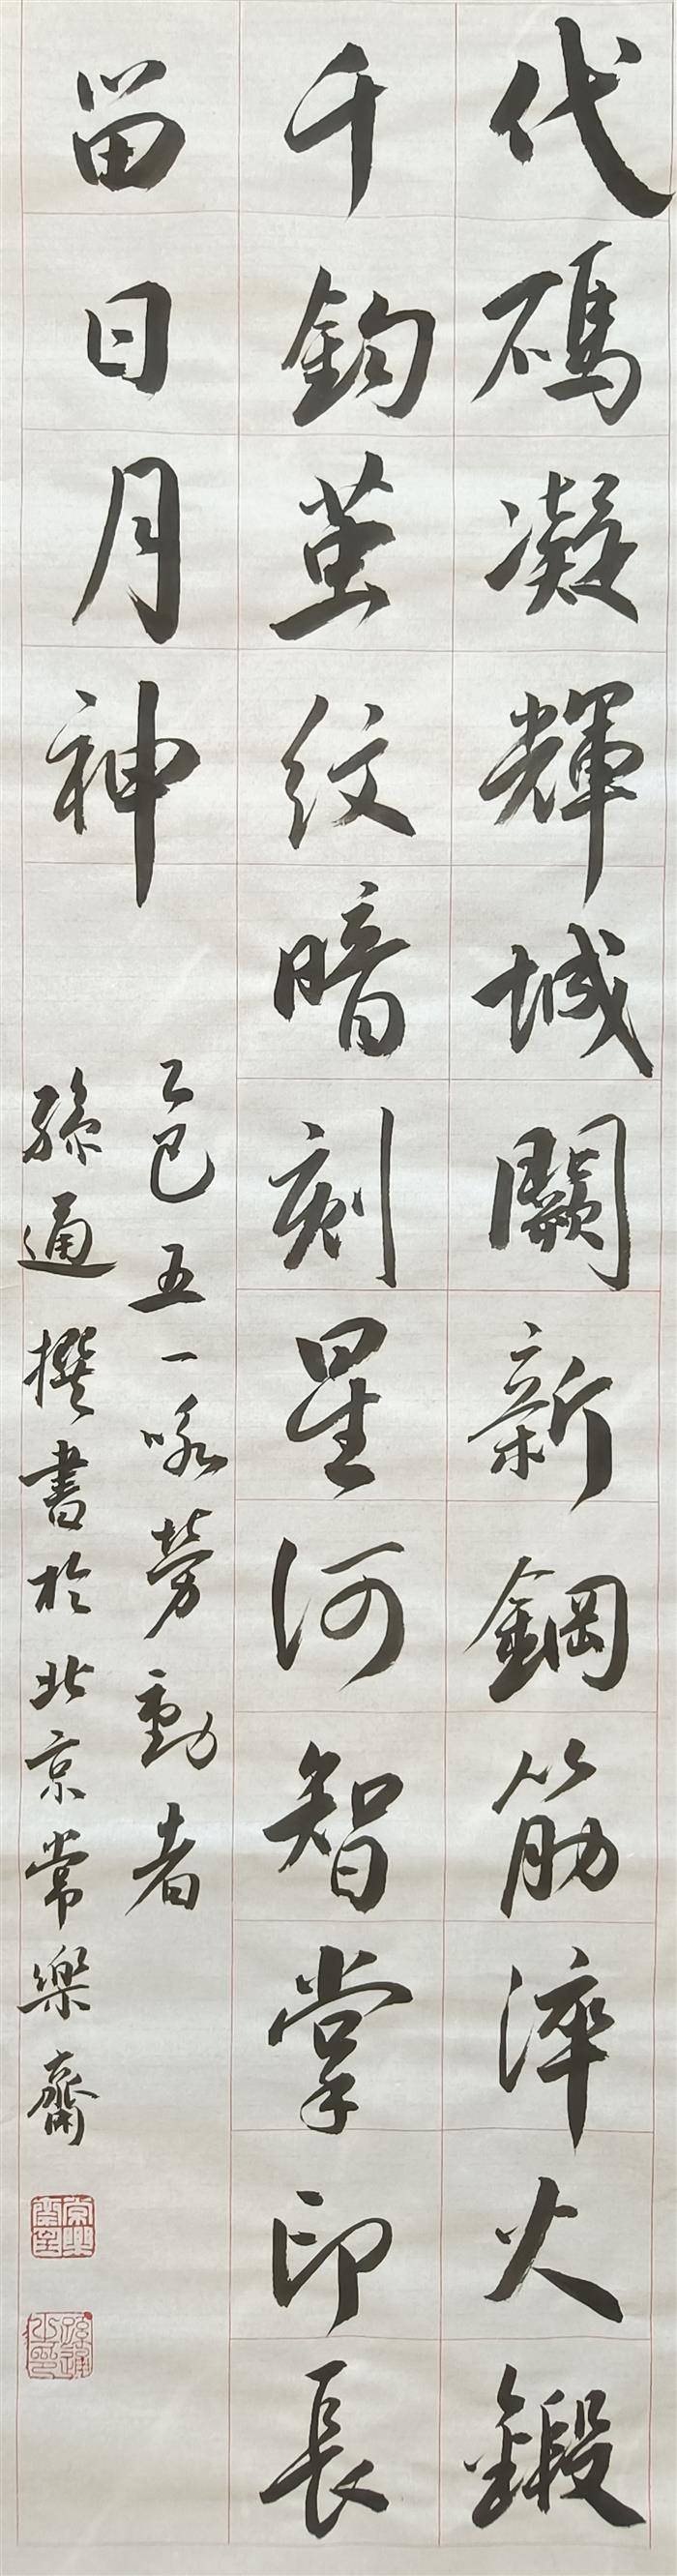 代碼凝輝城闕新鋼筋淬火鍛
千鈞茧紋暗刻星河智掌印長
留日月神
乙巳五一咏勞動者
孫通撰書於北京常樂齋
孫通之印